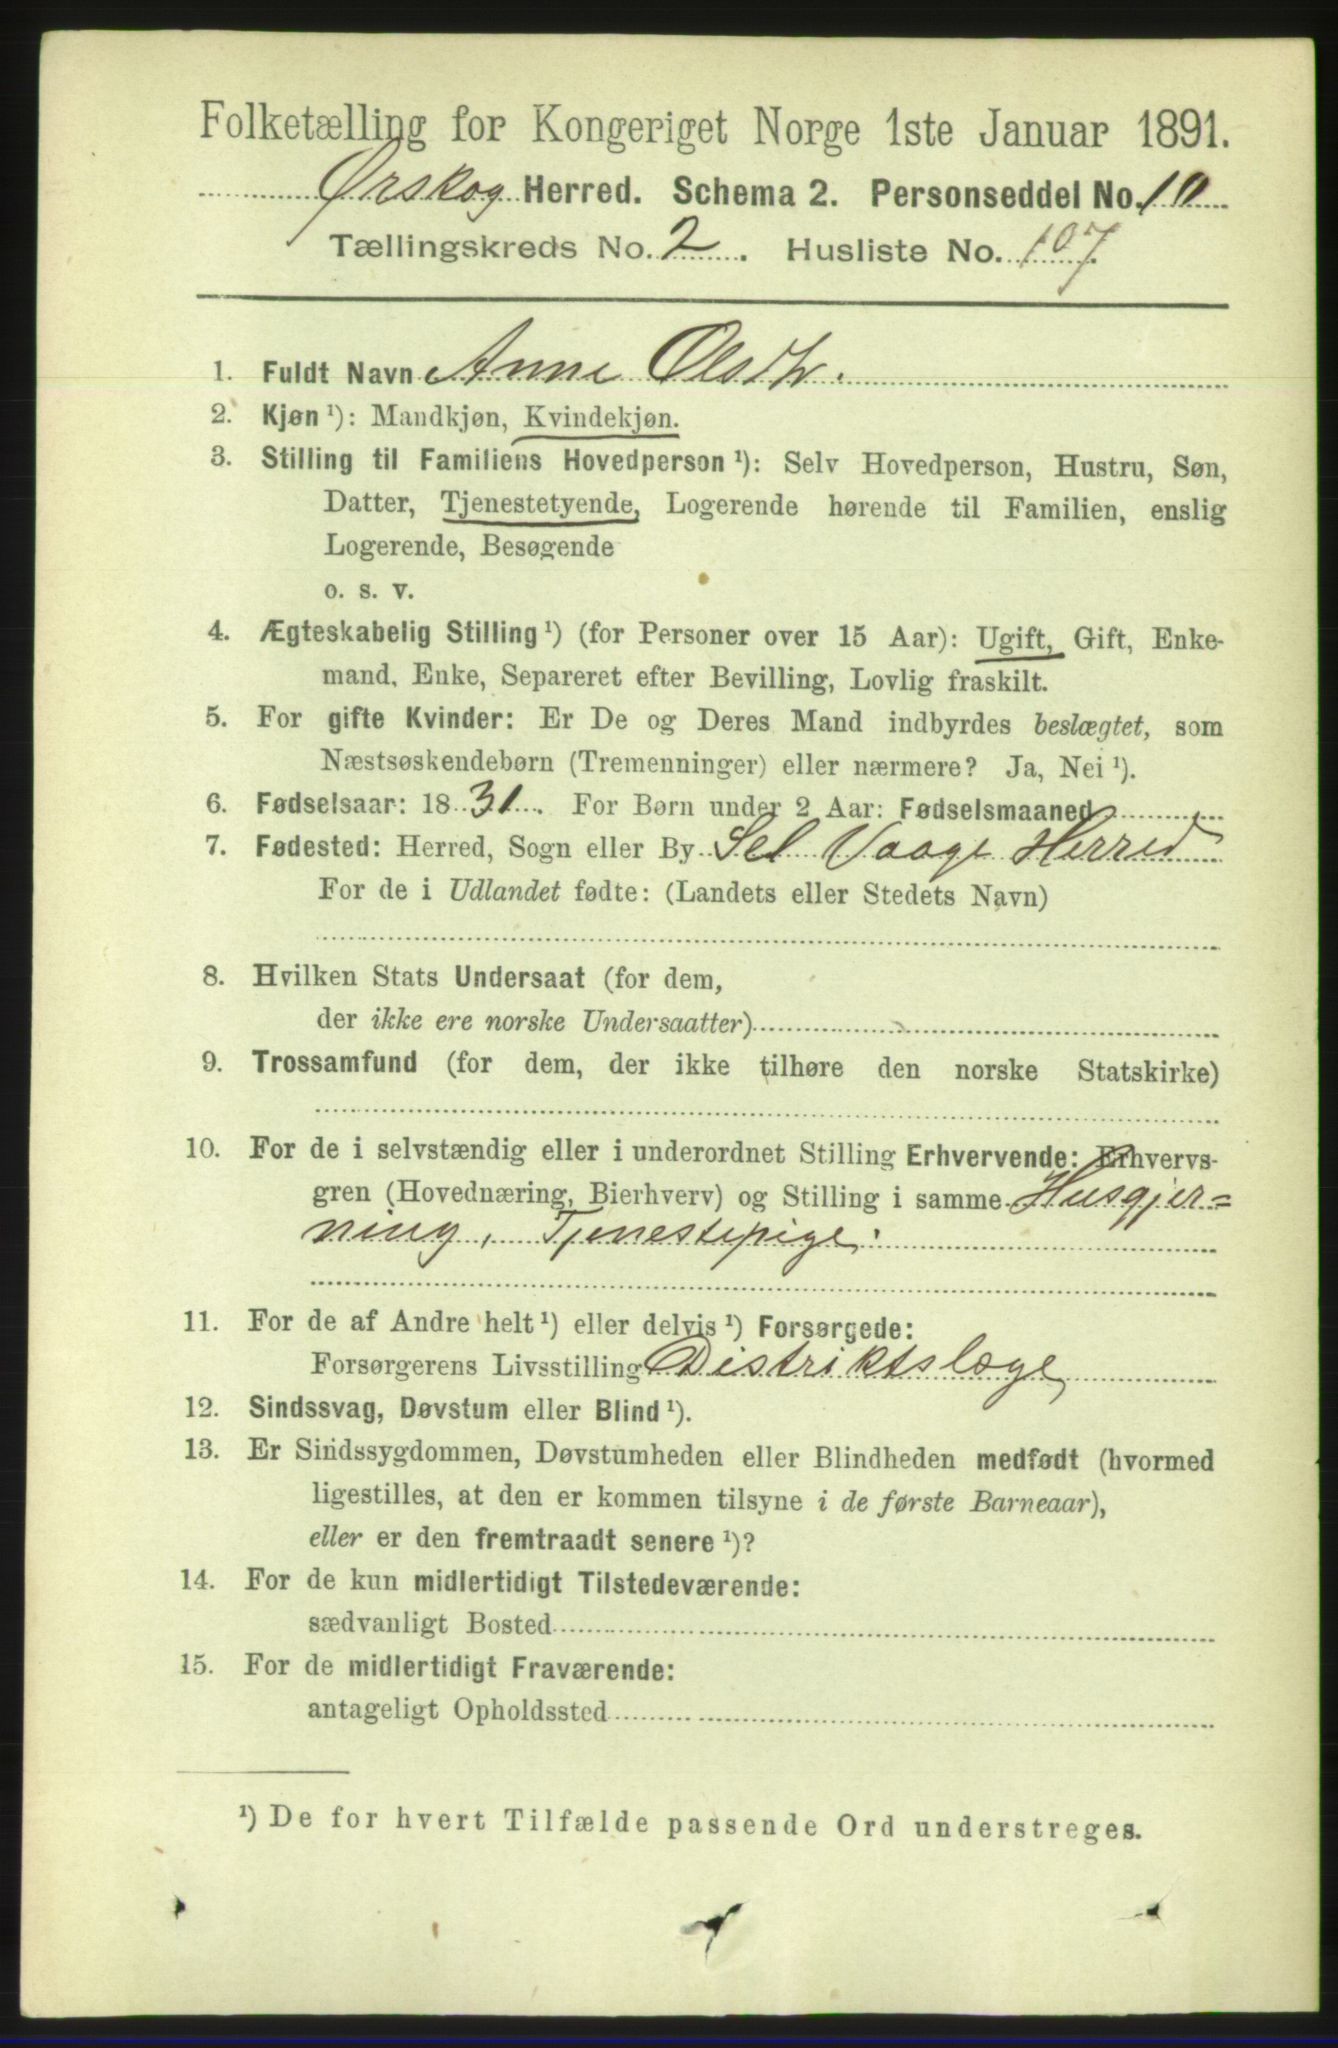 Folketælling for Kongeriget Norge 1ste Januar 1891.
Ørskog Herred. Schema 2. Personseddel No. 10
Tællingskreds No. 2. Husliste No. 107.
1. Fuldt Navn Anne Olsdtr.
2. Kjøn ¹): Mandkjøn, Kvindekjøn.
3. Stilling til Familiens Hovedperson ¹): Selv Hovedperson, Hustru, Søn,
Datter, Tjenestetyende, Logerende hørende til Familien, enslig
Logerende, Besøgende
o. s. v.
4. Ægteskabelig Stilling ¹) (for Personer over 15 Aar): Ugift, Gift, Enke-
mand, Enke, Separeret efter Bevilling, Lovlig fraskilt.
5. For gifte Kvinder: Er De og Deres Mand indbyrdes beslægtet, som
Næstsøskendebørn (Tremenninger) eller nærmere? Ja, Nei ¹).
6. Fødselsaar: 1831. For Børn under 2 Aar: Fødselsmaaned
7. Fødested: Herred, Sogn eller By Sel Vaage Herred
For de i Udlandet fødte: (Landets eller Stedets Navn)
8. Hvilken Stats Undersaat (for dem,
der ikke ere norske Undersaatter)
9. Trossamfund (for dem, der ikke tilhøre den norske Statskirke)
10. For de i selvstændig eller i underordnet Stilling Erhvervende: Erhvervs-
gren (Hovednæring, Bierhverv) og Stilling i samme Husgjer=
ning, Tjenestepige.
11. For de af Andre helt ¹) eller delvis ¹) Forsørgede:
Forsørgerens Livsstilling Distriktslæge
12. Sindssvag, Døvstum eller Blind ¹).
13. Er Sindssygdommen, Døvstumheden eller Blindheden medfødt (hvormed
ligestilles, at den er kommen tilsyne i de første Barneaar),
eller er den fremtraadt senere ¹)?
14. For de kun midlertidigt Tilstedeværende:
sædvanligt Bosted
15. For de midlertidigt Fraværende:
antageligt Opholdssted
¹) De for hvert Tilfælde passende Ord understreges.